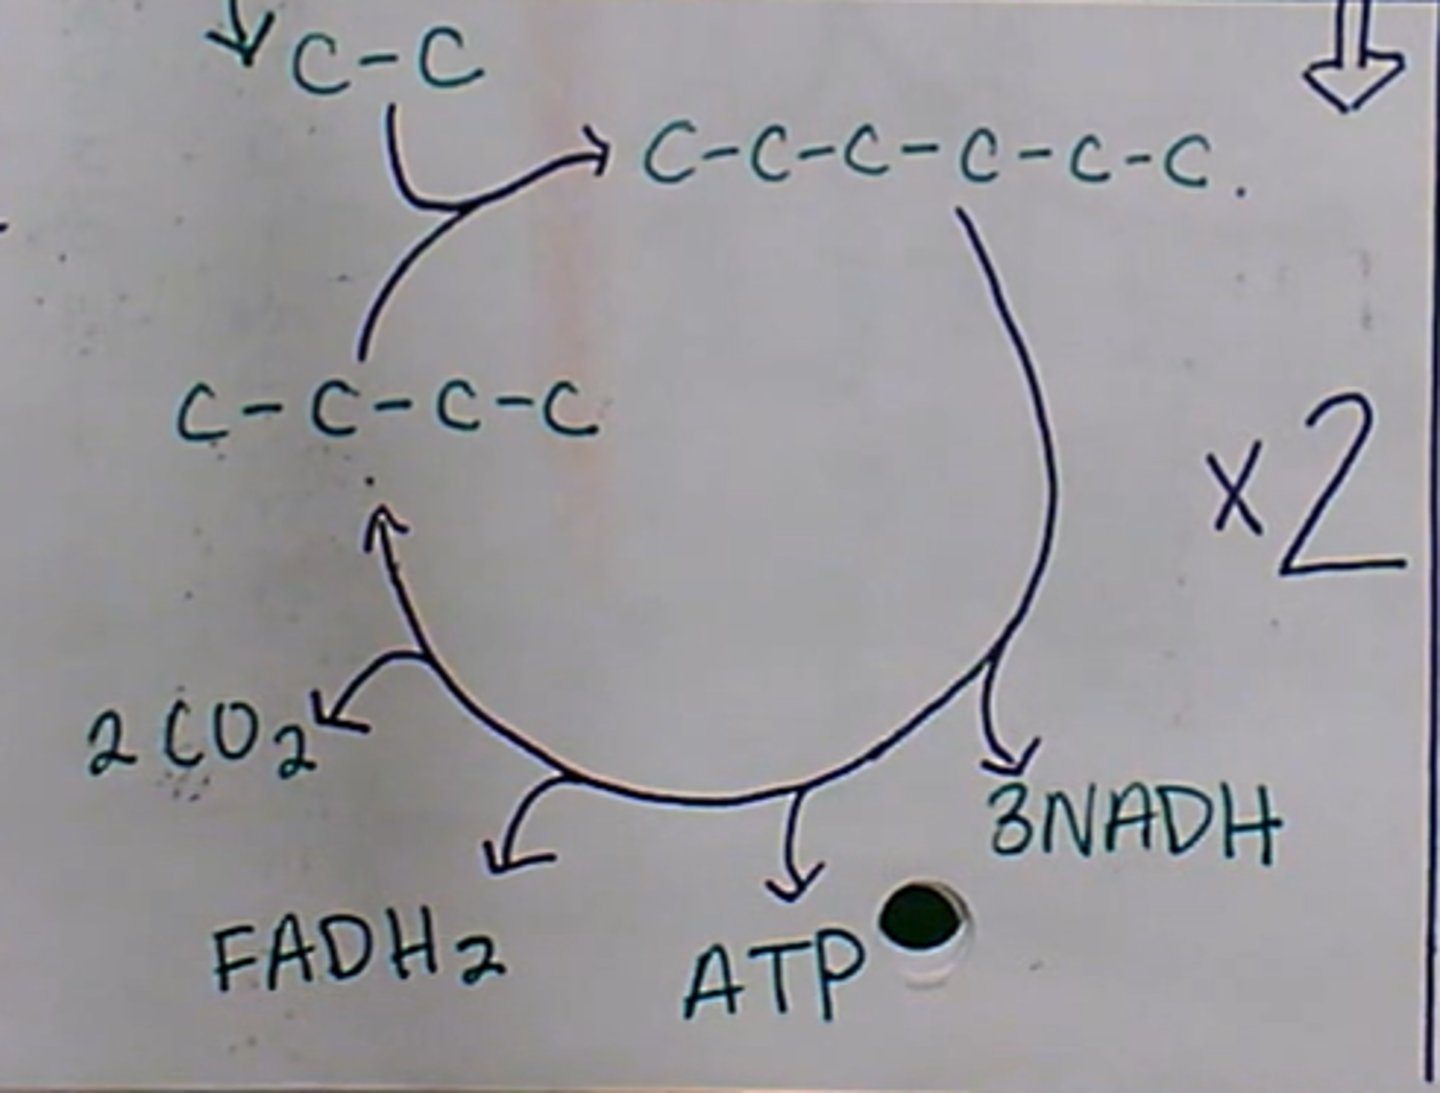 C-C
C-C-C-C-C-C
C-C-C-C
x2
2CO2
3NADH
FADH2
ATP